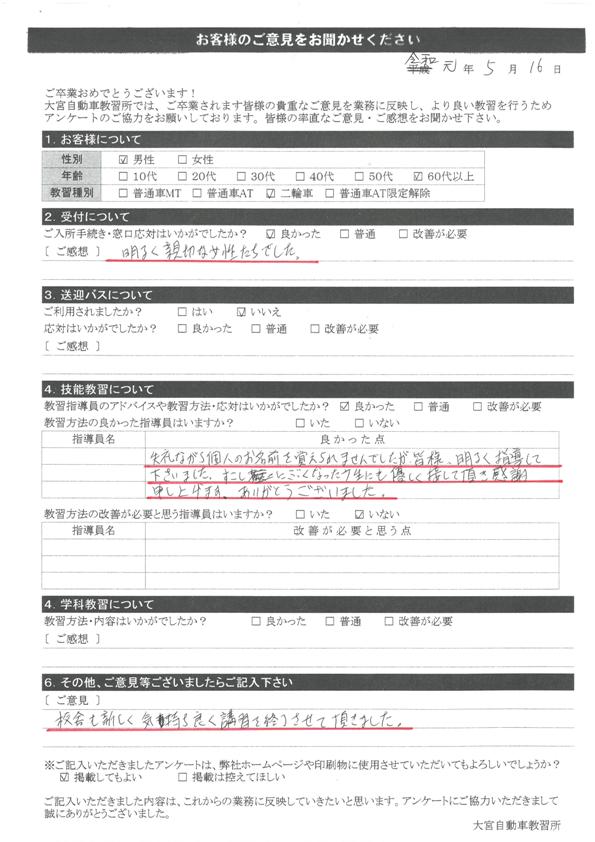 お客様のご意見をお聞かせください
令和 元 年 5 月 16 日
平成
ご卒業おめでとうございます！
大宮自動車教習所では、ご卒業されます皆様の貴重なご意見を業務に反映し、より良い教習を行うため
アンケートのご協力をお願いしております。皆様の率直なご意見・ご感想をお聞かせ下さい。
1. お客様について
性別 ☑ 男性 □ 女性
年齢 □ 10代 □ 20代 □ 30代 □ 40代 □ 50代 ☑ 60代以上
教習種別 □ 普通車MT □ 普通車AT ☑ 二輪車 □ 普通車AT限定解除
2. 受付について
ご入所手続き・窓口応対はいかがでしたか？ ☑ 良かった □ 普通 □ 改善が必要
[ ご感想 ] 明るく親切な女性たちでした。
3. 送迎バスについて
ご利用されましたか？ □ はい ☑ いいえ
応対はいかがでしたか？ □ 良かった □ 普通 □ 改善が必要
[ ご感想 ]
4. 技能教習について
教習指導員のアドバイスや教習方法・応対はいかがでしたか？ ☑ 良かった □ 普通 □ 改善が必要
教習方法の良かった指導員はいますか？ □ いた □ いない
指導員名 良かった点
失礼ながら個人のお名前を覚えられませんでしたが、皆様、明るく指導して
下さいました。すこし にごくなった にも優しく接して頂き感謝
申し上げます。ありがとうございました。
教習方法の改善が必要と思う指導員はいますか？ □ いた ☑ いない
指導員名 改善が必要と思う点
4. 学科教習について
教習方法・内容はいかがでしたか？ □ 良かった □ 普通 □ 改善が必要
[ ご感想 ]
6. その他、ご意見等ございましたらご記入下さい
[ ご意見 ]
校舎も新しく気持ち良く講習を終うさせて頂きました。
※ご記入いただきましたアンケートは、弊社ホームページや印刷物に使用させていただいてもよろしいでしょうか？
☑ 掲載してもよい □ 掲載は控えてほしい
ご記入いただきました内容は、これからの業務に反映していきたいと思います。アンケートにご協力いただきまして
誠にありがとうございました。
大宮自動車教習所